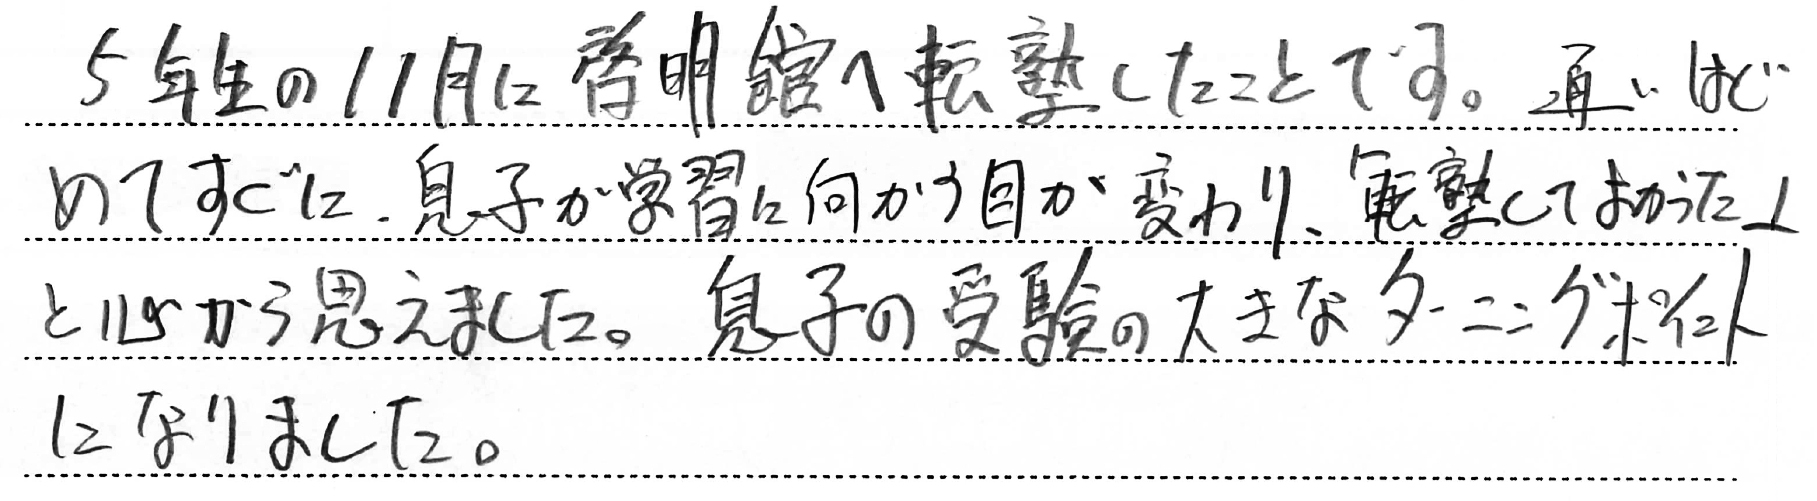 5年生の11月に啓明館へ転塾したことです。通いはじ
めてすぐに、息子が学習に向かう目が変わり、「転塾してよかった」
と心から思えました。息子の受験の大きなターニングポイント
になりました。